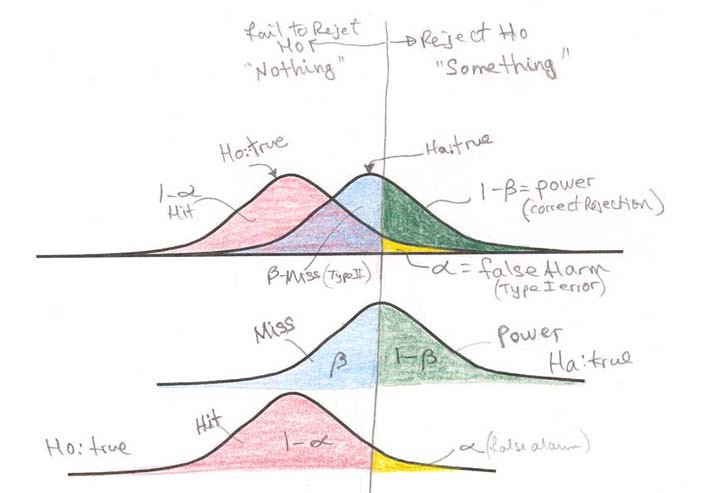 Fail to Rejet
Ho
"Nothing"
Reject Ho
"Something"
Ho:true
Ha:true
1-α
Hit
1-β=power
(correct Rejection)
β-Miss (Type II)
α=false Alarm
(Type I error)
Miss
β
1-β
Power
Ha:true
Ho:true
Hit
1-α
α (false alarm)